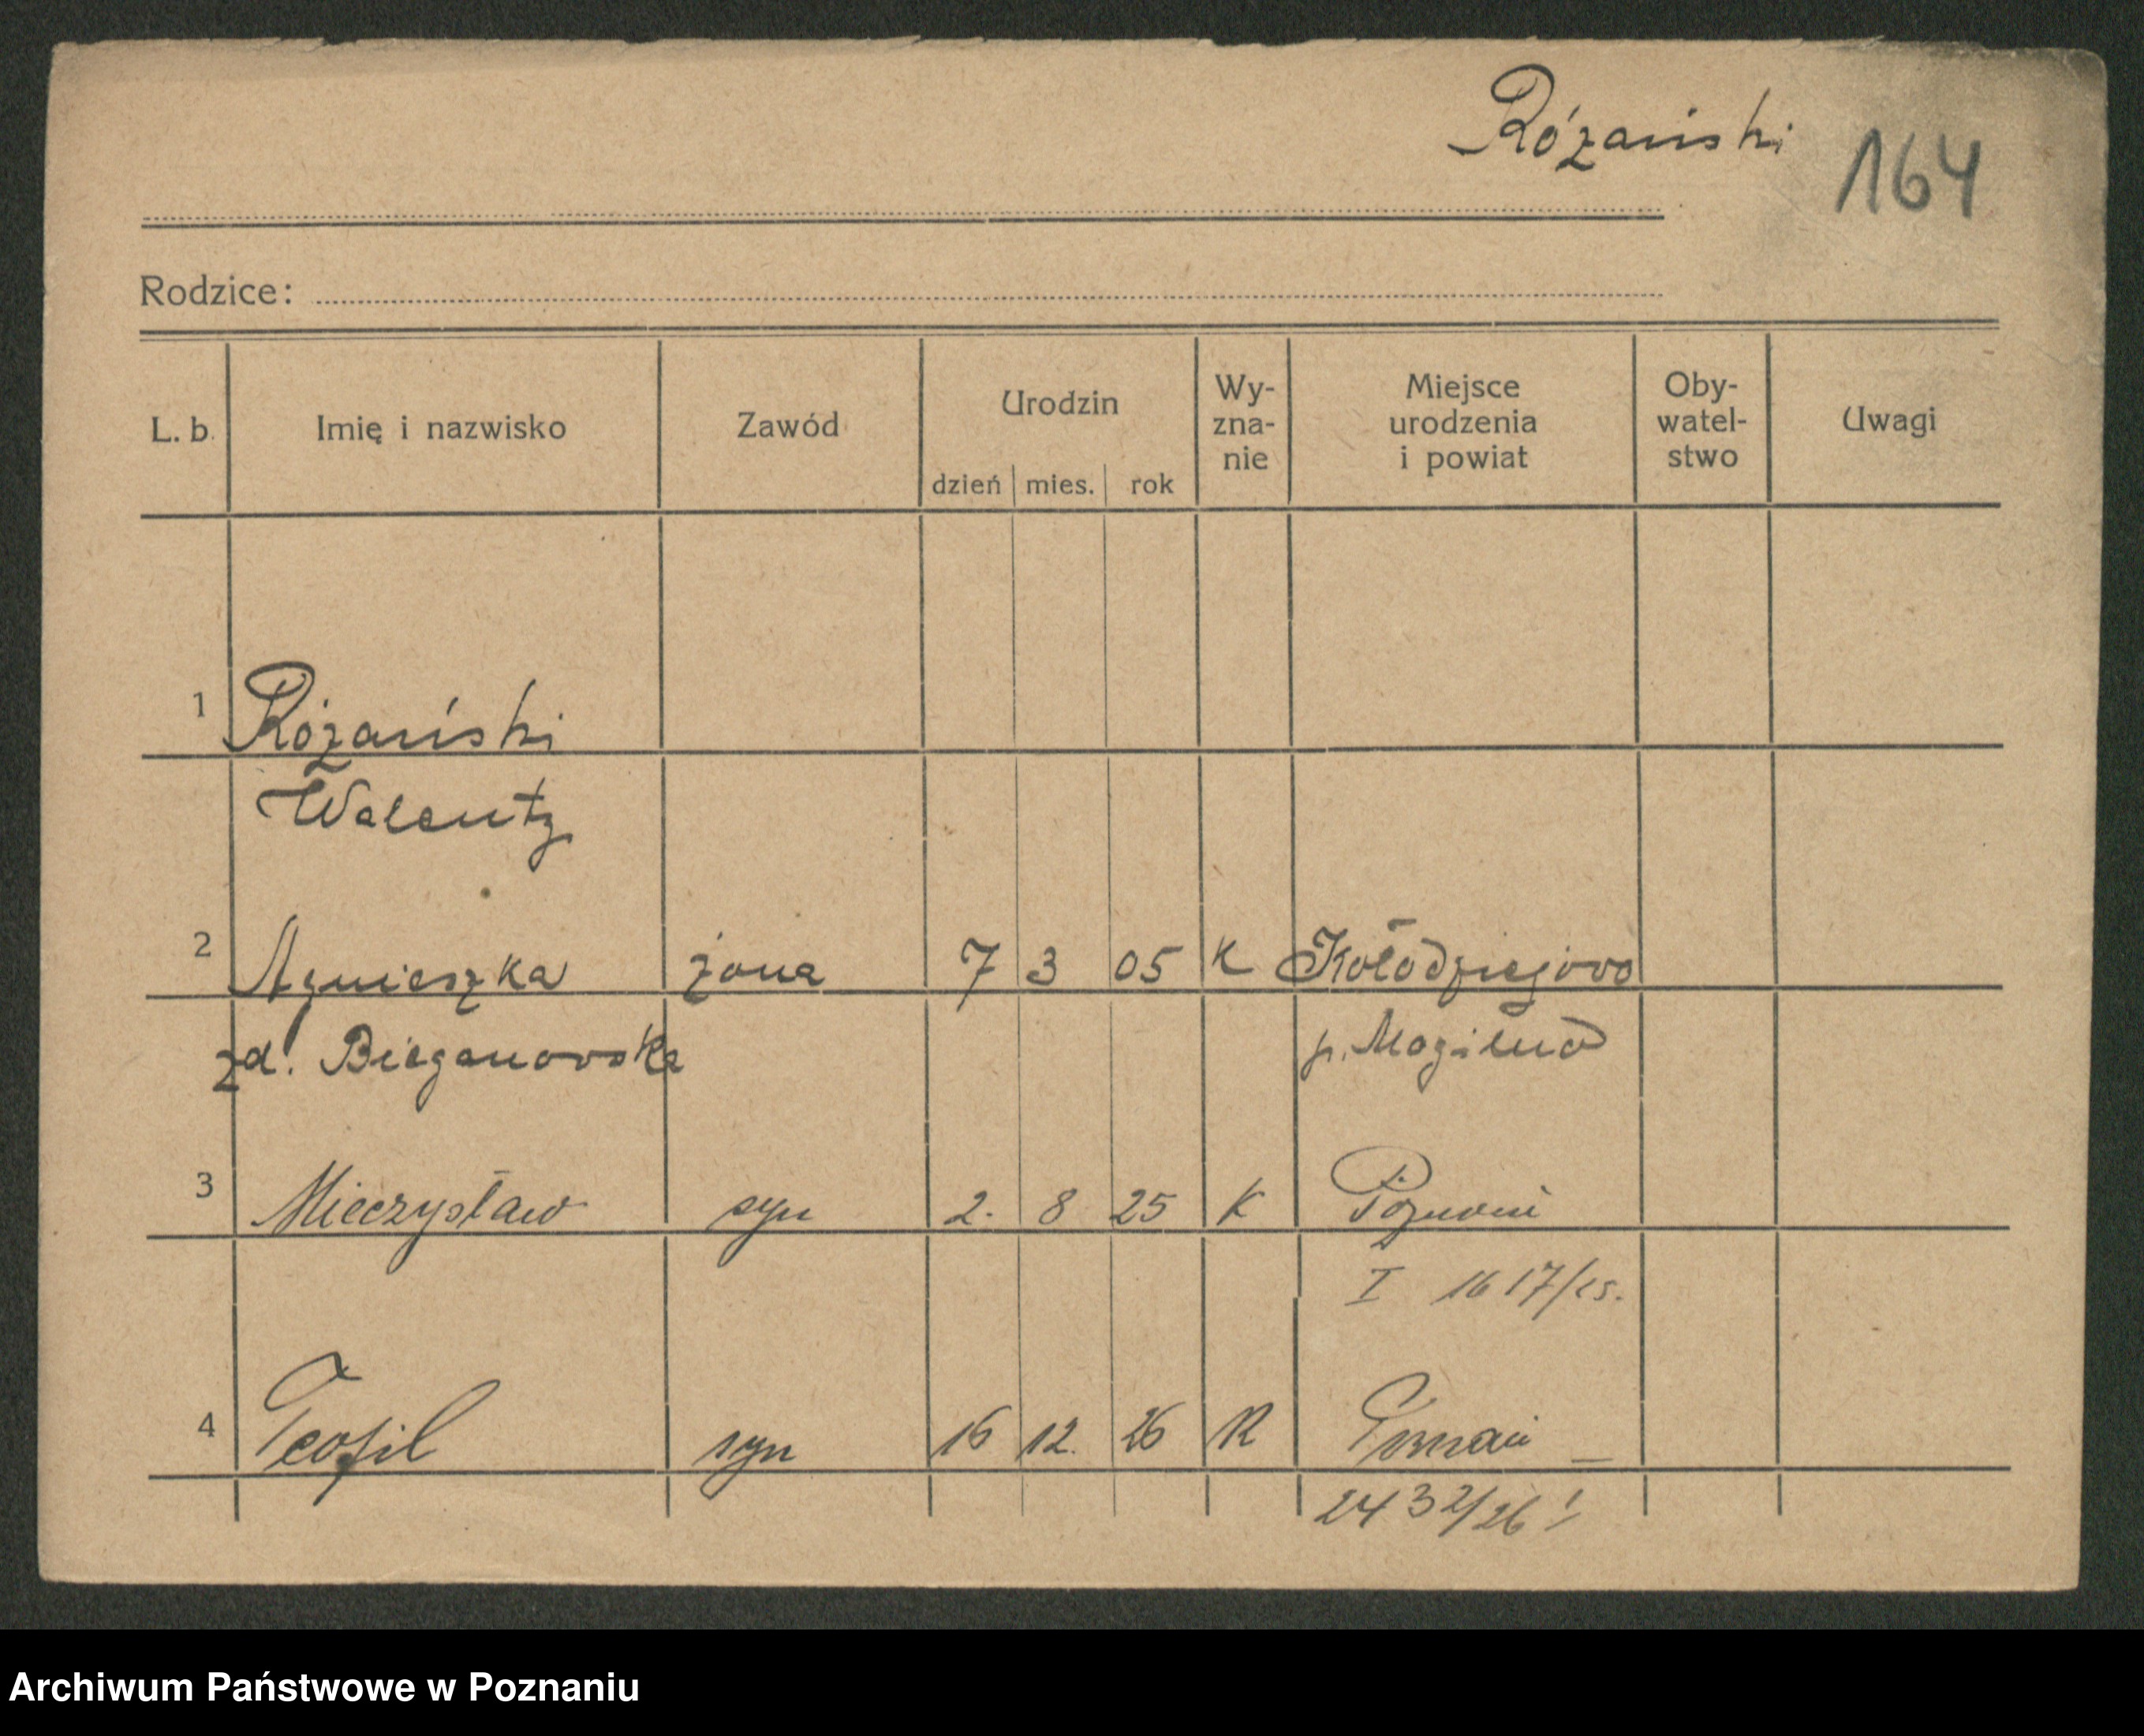 Różański
164
Rodzice:
L. b. Imię i nazwisko Zawód Urodzin dzień mies. rok Wy-zna-nie Miejsce urodzenia i powiat Oby-watel-stwo Uwagi
1 Różański
Walenty
2 Agnieszka żona 7 3 05 K Kołodziejovo
zd. Bieganovska p. Mogilno
3 Mieczysław syn 2. 8 25 K Poznań
I 1617/25.
4 Teofil syn 16 12. 26 K Poznań —
2432/26 I
Archiwum Państwowe w Poznaniu